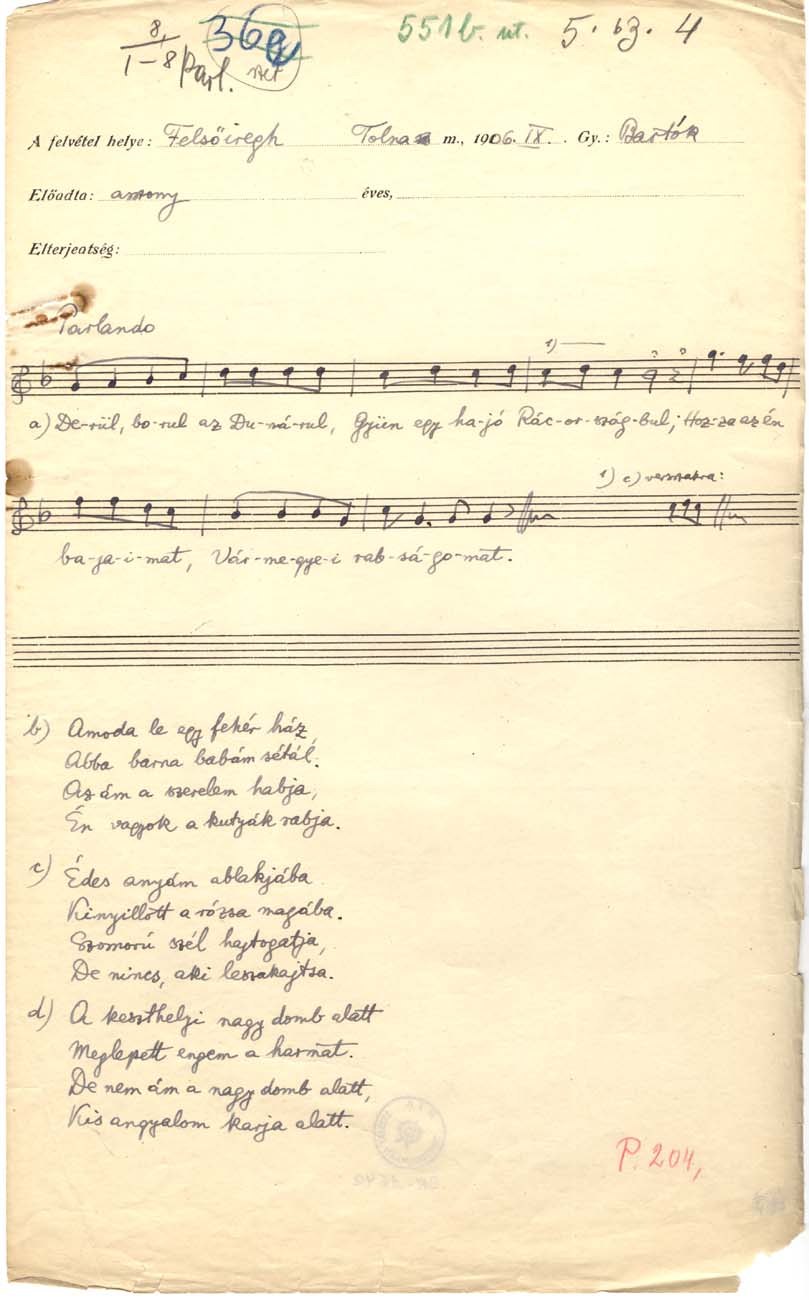 8,
1-8
Parl.
36a
551b. út. 5. b3. 4
A felvétel helye: Felsőiregh Tolna m., 1906. IX. . Gy.: Bartók
Előadta: asszony éves,
Elterjedtség:
Parlando
1)
a) De-rül, bo-rul az Du-ná-rul, Gyün egy ha-jó Rác-or-szág-bul; Hoz-za az én
1) c) versszakra:
ba-ja-i-mat, Vár-me-gye-i rab-sá-go-mat.
b) Amoda le egy fehér ház,
Abba barna babám sétál.
Az ám a szerelem habja,
Én vagyok a kutyák rabja.
c) Édes anyám ablakjába
Kinyillott a rózsa magába.
Szomorú szél hajtogatja,
De nincs, aki leszakajtsa.
d) A keszthelyi nagy domb alatt
Meglepett engem a harmat.
De nem ám a nagy domb alatt,
Kis angyalom karja alatt.
P. 204,